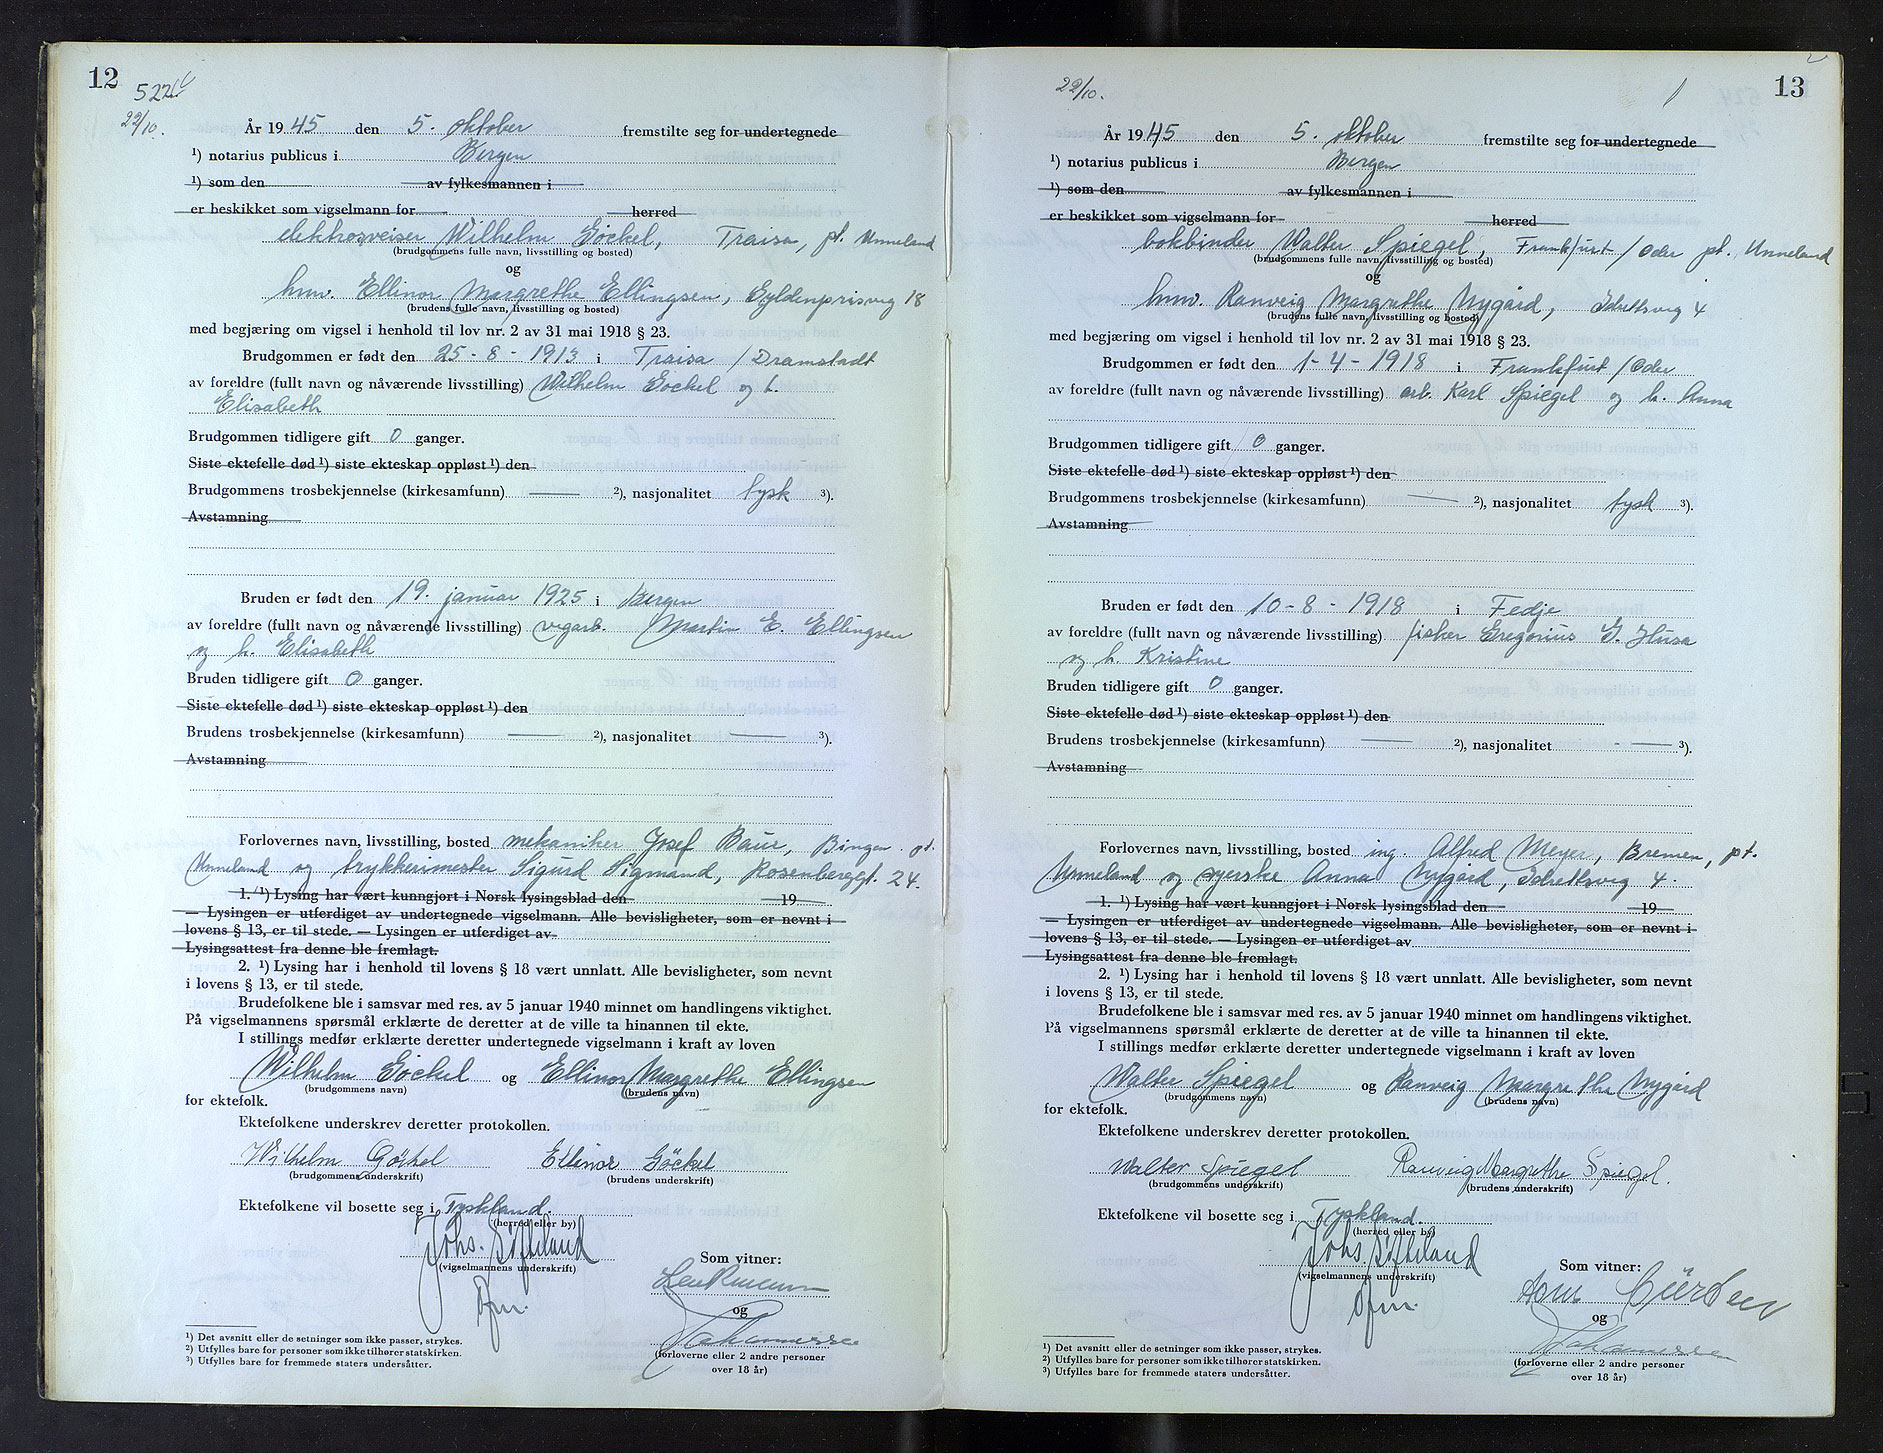 12
522
22/10.
År 1945 den 5. oktober fremstilte seg for undertegnede
¹) notarius publicus i Bergen
¹) som den av fylkesmannen i
er beskikket som vigselmann for herred
elektrosveiser Wilhelm Göckel, Traisa, pt. Unneland
(brudgommens fulle navn, livsstilling og bosted)
og
hmv. Ellinor Margrethe Ellingsen, Gyldenprisveg 18
(brudens fulle navn, livsstilling og bosted)
med begjæring om vigsel i henhold til lov nr. 2 av 31 mai 1918 § 23.
Brudgommen er født den 25-8-1913 i Traisa / Dramstadt
av foreldre (fullt navn og nåværende livsstilling) Wilhelm Göckel og h.
Elisabeth
Brudgommen tidligere gift 0 ganger.
Siste ektefelle død ¹) siste ekteskap oppløst ¹) den
Brudgommens trosbekjennelse (kirkesamfunn) — ²), nasjonalitet tysk ³).
Avstamning
Bruden er født den 19. januar 1925 i Bergen
av foreldre (fullt navn og nåværende livsstilling) vegarb. Martin E. Ellingsen
og h. Elisabeth
Bruden tidligere gift 0 ganger.
Siste ektefelle død ¹) siste ekteskap oppløst ¹) den
Brudens trosbekjennelse (kirkesamfunn) — ²), nasjonalitet — ³).
Avstamning
Forlovernes navn, livsstilling, bosted mekaniker Josef Baur, Bingen pt.
Unneland og trykkerimester Sigurd Sigmand, Rosenberggt. 24.
1. ¹) Lysing har vært kunngjort i Norsk lysingsblad den 19
— Lysingen er utferdiget av undertegnede vigselmann. Alle bevisligheter, som er nevnt i
lovens § 13, er til stede. — Lysingen er utferdiget av
Lysingsattest fra denne ble fremlagt.
2. ¹) Lysing har i henhold til lovens § 18 vært unnlatt. Alle bevisligheter, som nevnt
i lovens § 13, er til stede.
Brudefolkene ble i samsvar med res. av 5 januar 1940 minnet om handlingens viktighet.
På vigselmannens spørsmål erklærte de deretter at de ville ta hinannen til ekte.
I stillings medfør erklærte deretter undertegnede vigselmann i kraft av loven
Wilhelm Göckel og Ellinor Margrethe Ellingsen
(brudgommens navn) (brudens navn)
for ektefolk.
Ektefolkene underskrev deretter protokollen.
Wilhelm Göckel Ellinor Göckel
(brudgommens underskrift) (brudens underskrift)
Ektefolkene vil bosette seg i Tyskland.
(herred eller by)
Johs. Softeland
(vigselmannens underskrift)
Som vitner:
og
Johannessen
(forloverne eller 2 andre personer
over 18 år)
¹) Det avsnitt eller de setninger som ikke passer, strykes.
²) Utfylles bare for personer som ikke tilhører statskirken.
³) Utfylles bare for fremmede staters undersåtter.
13
22/10.
År 1945 den 5. oktober fremstilte seg for undertegnede
¹) notarius publicus i Bergen
¹) som den av fylkesmannen i
er beskikket som vigselmann for herred
bokbinder Walter Spiegel, Frankfurt / Oder pt. Unneland
(brudgommens fulle navn, livsstilling og bosted)
og
hmv. Ranveig Margrethe Nygård, Idrettsveg 4
(brudens fulle navn, livsstilling og bosted)
med begjæring om vigsel i henhold til lov nr. 2 av 31 mai 1918 § 23.
Brudgommen er født den 1-4-1918 i Frankfurt / Oder
av foreldre (fullt navn og nåværende livsstilling) arb. Karl Spiegel og h. Anna
Brudgommen tidligere gift 0 ganger.
Siste ektefelle død ¹) siste ekteskap oppløst ¹) den
Brudgommens trosbekjennelse (kirkesamfunn) — ²), nasjonalitet tysk ³).
Avstamning
Bruden er født den 10-8-1918 i Fedje
av foreldre (fullt navn og nåværende livsstilling) fisker Gregorius G. Husa
og h. Kristine
Bruden tidligere gift 0 ganger.
Siste ektefelle død ¹) siste ekteskap oppløst ¹) den
Brudens trosbekjennelse (kirkesamfunn) — ²), nasjonalitet — ³).
Avstamning
Forlovernes navn, livsstilling, bosted ing. Alfred Meyer, Bremen, pt.
Unneland og syerske Anna Nygård, Idrettsveg 4.
1. ¹) Lysing har vært kunngjort i Norsk lysingsblad den 19
— Lysingen er utferdiget av undertegnede vigselmann. Alle bevisligheter, som er nevnt i
lovens § 13, er til stede. — Lysingen er utferdiget av
Lysingsattest fra denne ble fremlagt.
2. ¹) Lysing har i henhold til lovens § 18 vært unnlatt. Alle bevisligheter, som nevnt
i lovens § 13, er til stede.
Brudefolkene ble i samsvar med res. av 5 januar 1940 minnet om handlingens viktighet.
På vigselmannens spørsmål erklærte de deretter at de ville ta hinannen til ekte.
I stillings medfør erklærte deretter undertegnede vigselmann i kraft av loven
Walter Spiegel og Ranveig Margrethe Nygård
(brudgommens navn) (brudens navn)
for ektefolk.
Ektefolkene underskrev deretter protokollen.
Walter Spiegel Ranveig Margrethe Spiegel.
(brudgommens underskrift) (brudens underskrift)
Ektefolkene vil bosette seg i Tyskland.
(herred eller by)
Johs Softeland
(vigselmannens underskrift)
Som vitner:
og
Johannessen
(forloverne eller 2 andre personer
over 18 år)
¹) Det avsnitt eller de setninger som ikke passer, strykes.
²) Utfylles bare for personer som ikke tilhører statskirken.
³) Utfylles bare for fremmede staters undersåtter.